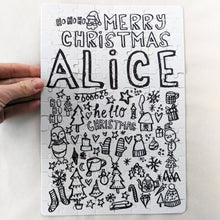 HOHOHO MERRY
CHRISTMAS
ALiCE
HO HO HO
hello
CHRISTMAS